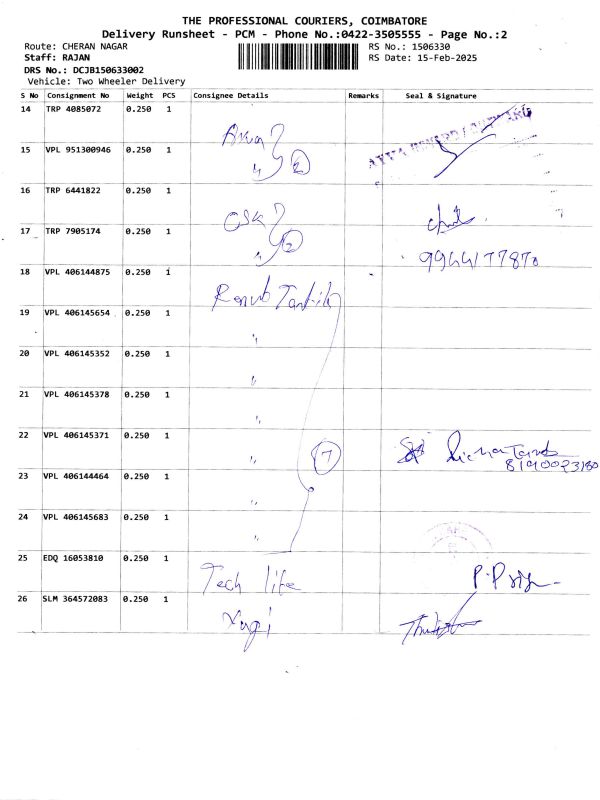 THE PROFESSIONAL COURIERS, COIMBATORE
Delivery Runsheet - PCM - Phone No.:0422-3505555 - Page No.:2
Route: CHERAN NAGAR
RS No.: 1506330
Staff: RAJAN
RS Date: 15-Feb-2025
DRS No.: DCJB150633002
Vehicle: Two Wheeler Delivery
S No Consignment No Weight PCS Consignee Details Remarks Seal & Signature
14 TRP 4085072 0.250 1
15 VPL 951300946 0.250 1 " 2
16 TRP 6441822 0.250 1
17 TRP 7905174 0.250 1 " 2
18 VPL 406144875 0.250 1
19 VPL 406145654 0.250 1 "
20 VPL 406145352 0.250 1 "
21 VPL 406145378 0.250 1 "
22 VPL 406145371 0.250 1 " 7
8190023180
23 VPL 406144464 0.250 1 "
24 VPL 406145683 0.250 1 "
25 EDQ 16053810 0.250 1 Tech life
26 SLM 364572083 0.250 1